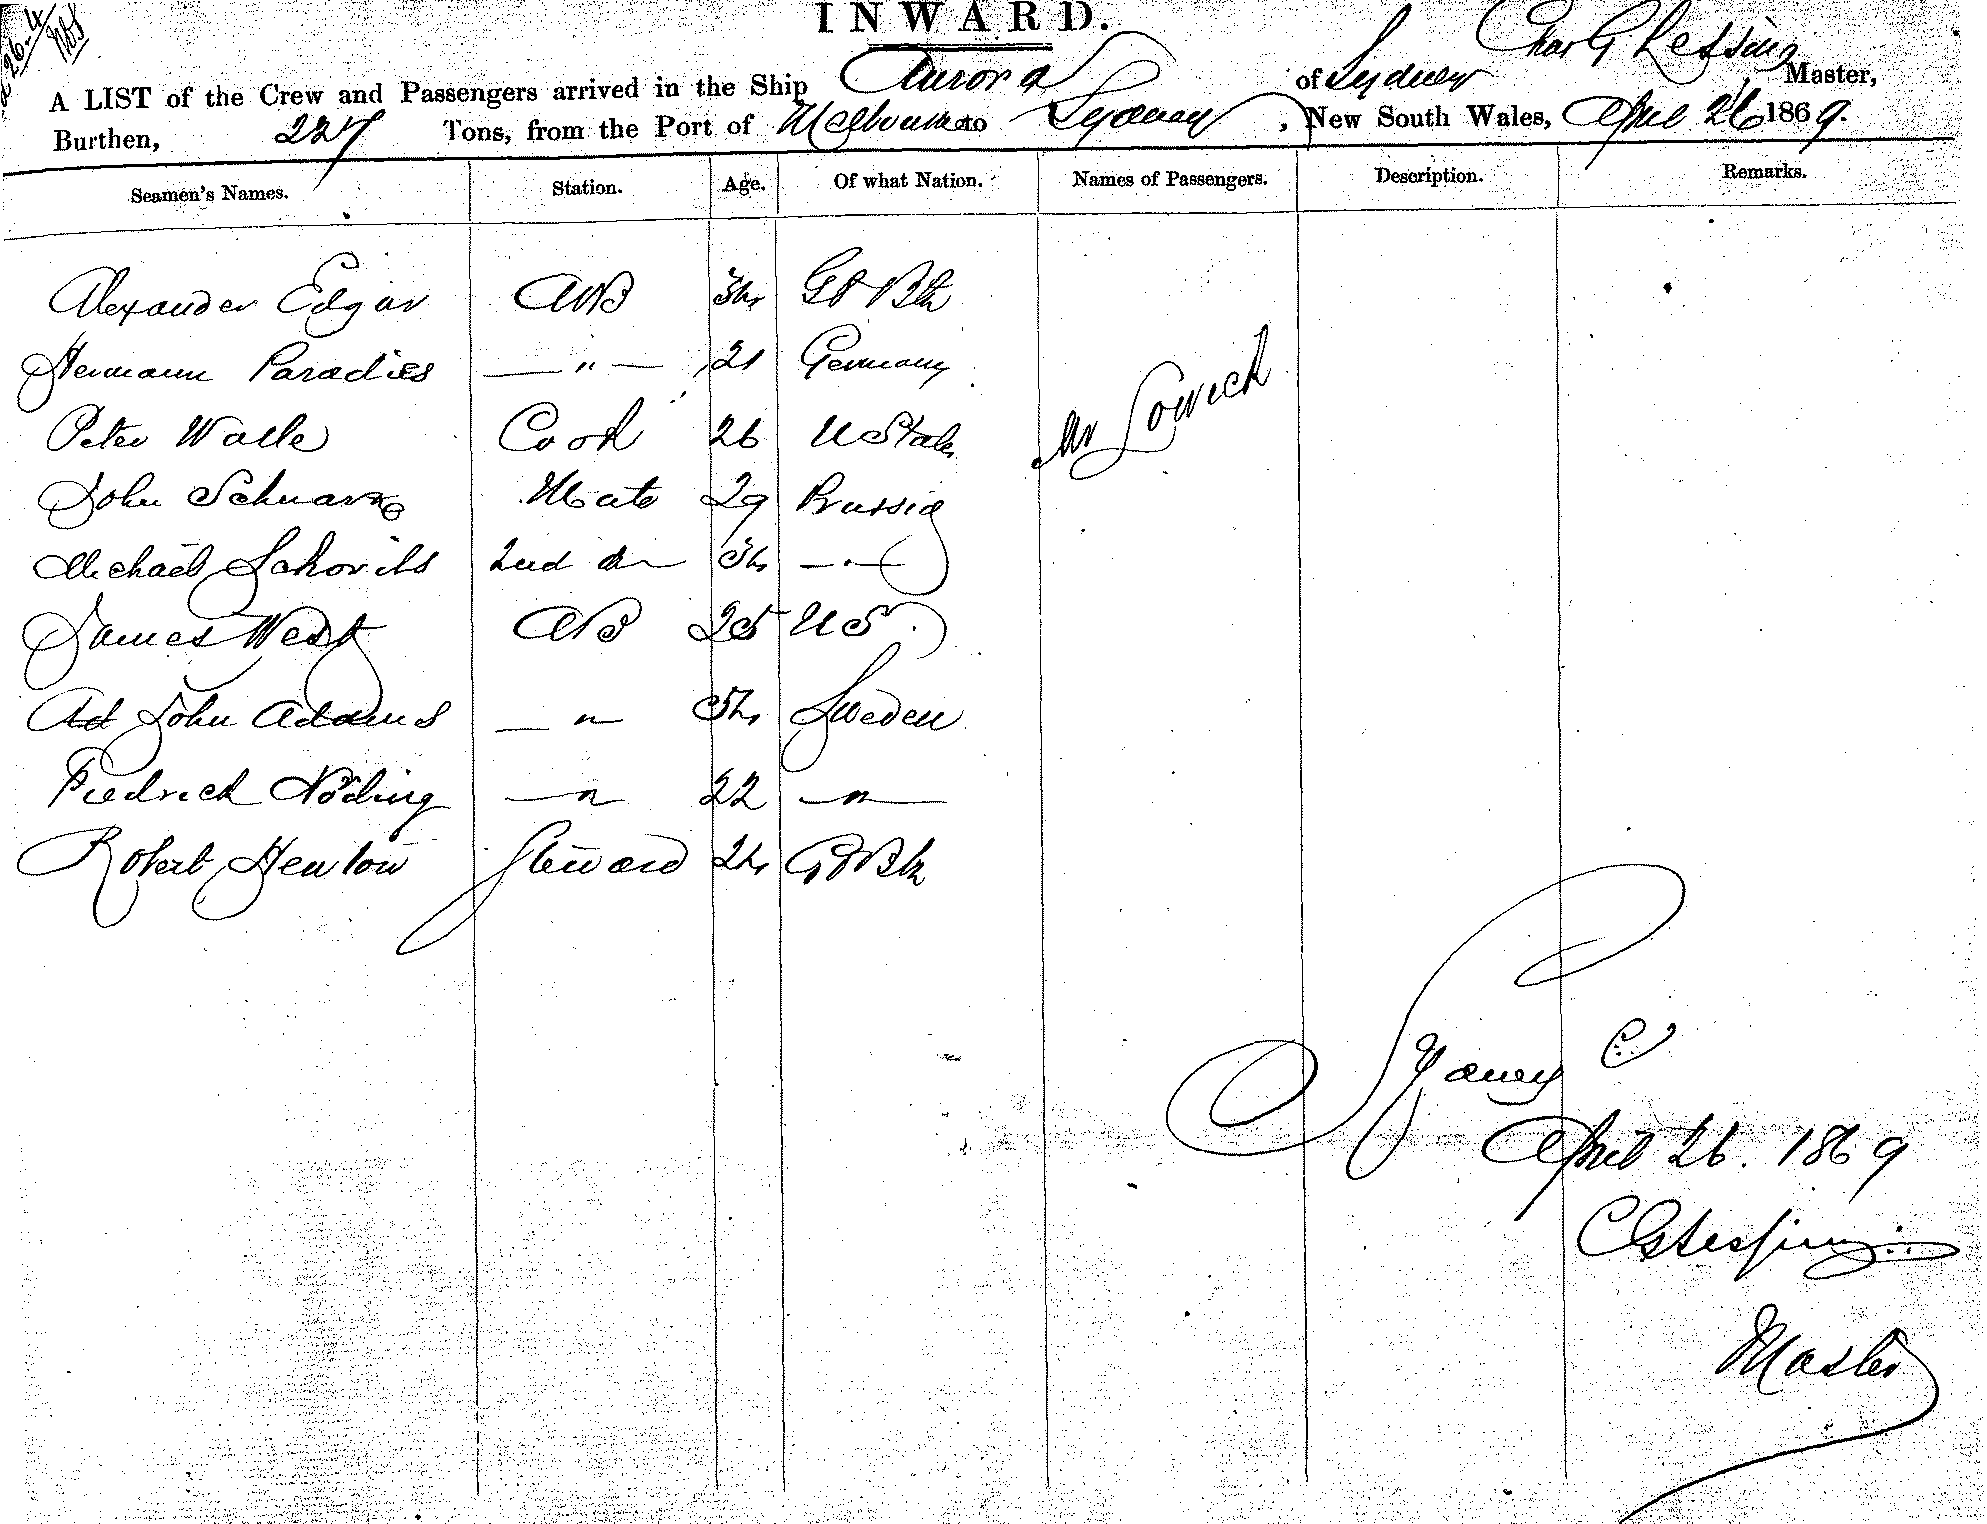 INWARD.
A LIST of the Crew and Passengers arrived in the Ship Aurora of Sydney Chas G Lessing Master,
Burthen, 227 Tons, from the Port of Melbourne to Sydney, New South Wales, April 26 1869.
Seamen's Names. Station. Age. Of what Nation. Names of Passengers. Description. Remarks.
Alexander Edgar AB 34 Gt Btn
Hermann Paradies —"— 21 Germany
Peter Walle Cook 26 U States
Mr Lowick
John Schwarz Mate 29 Prussia
Michael 2nd do 34 —"—
James West AB 25 US
Ad John Adams —"— 54 Sweden
Fredrick Nöding —"— 22 —"—
Robert Newton Steward 24 Gt Btn
Sydney
April 26. 1869
CG Lessing
Master